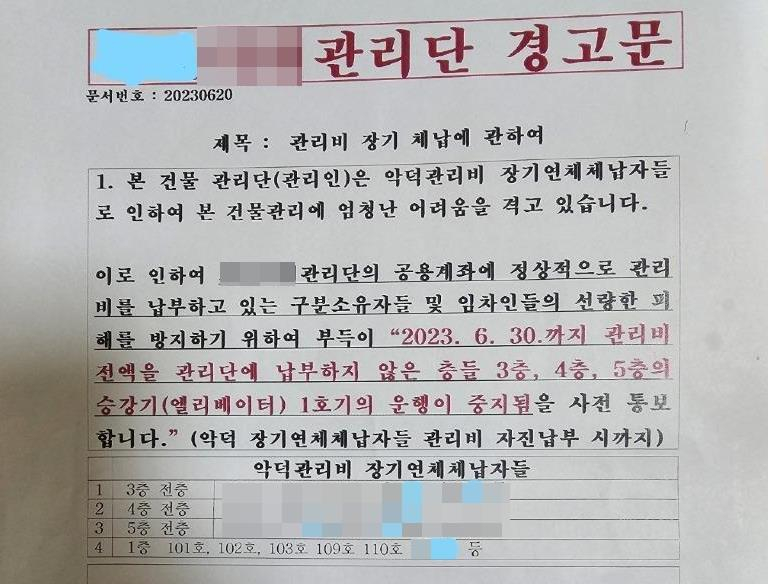 관리단 경고문
문서번호 : 20230620
제목 : 관리비 장기 체납에 관하여
1. 본 건물 관리단(관리인)은 악덕관리비 장기연체체납자들
로 인하여 본 건물관리에 엄청난 어려움을 격고 있습니다.
이로 인하여 관리단의 공용계좌에 정상적으로 관리
비를 납부하고 있는 구분소유자들 및 임차인들의 선량한 피
해를 방지하기 위하여 부득이 “2023. 6. 30.까지 관리비
전액을 관리단에 납부하지 않은 층들 3층, 4층, 5층의
승강기(엘리베이터) 1호기의 운행이 중지됨을 사전 통보
합니다.” (악덕 장기연체체납자들 관리비 자진납부 시까지)
악덕관리비 장기연체체납자들
1 3층 전층
2 4층 전층
3 5층 전층
4 1층 101호, 102호, 103호 109호 110호 등